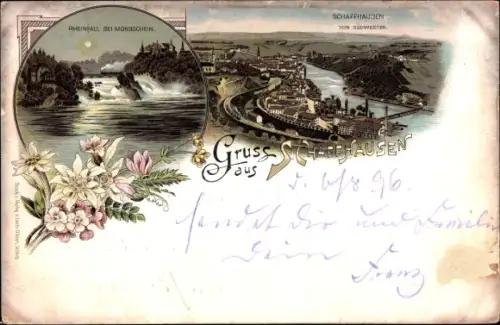 RHEINFALL BEI MONDSCHEIN.
SCHAFFHAUSEN
VON SÜDWESTEN.
Gruss
aus SCHAFFHAUSEN
d. 6/8 96.
sendet dir und Familie
Dein
Franz